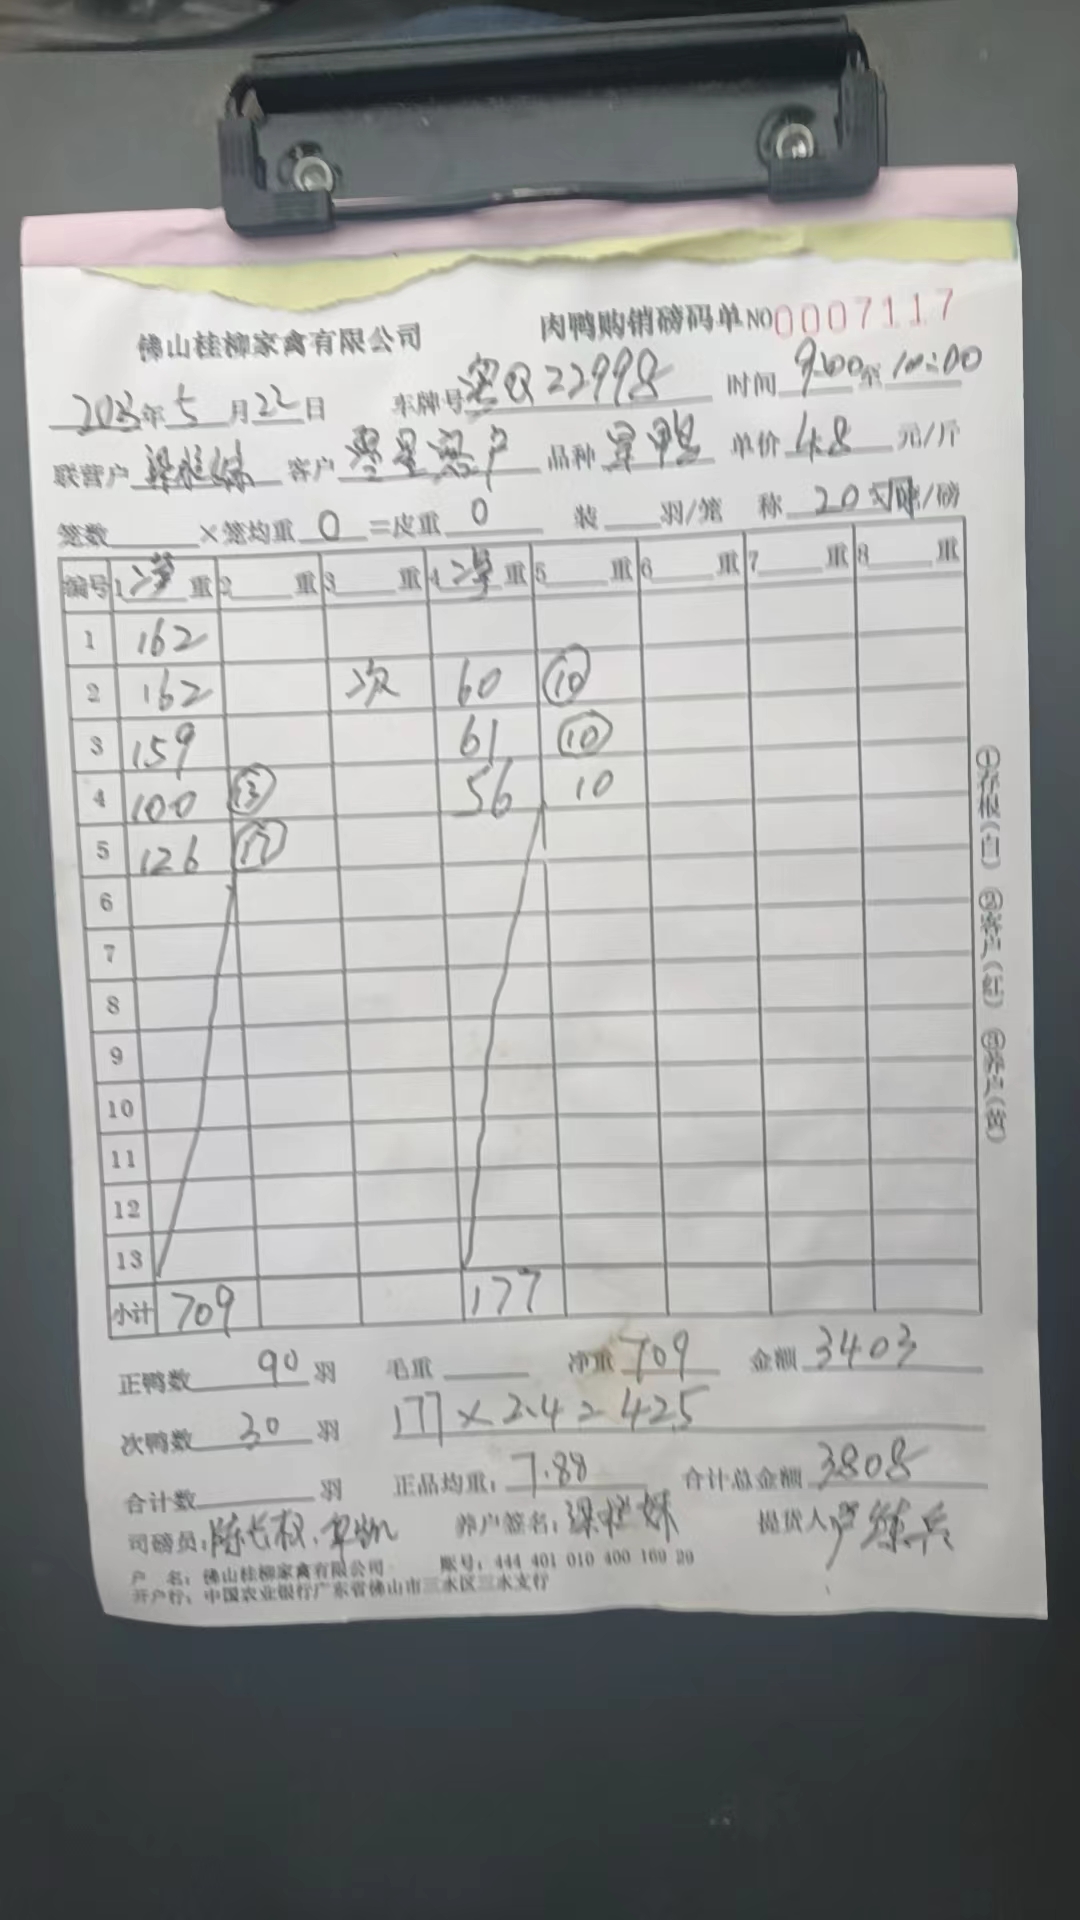 佛山桂柳家禽有限公司 肉鸭购销磅码单 NO 0007117
2023年5月22日 车牌号 粤Q22998 时间 9:00至10:00
联营户 客户 零星客户 品种 单价 4.8 元/斤
笼数 ×笼均重 0 =皮重 0 装 羽/笼 称 20 羽/磅
编号 1 净 重 2 重 3 重 4 净 重 5 重 6 重 7 重 8 重
1 162
2 162 次 60 10
3 159 61 10
4 100 13 56 10
5 126 17
6
7
8
9
10
11
12
13
小计 709 177
正鸭数 90 羽 毛重 净重 709 金额 3403
次鸭数 30 羽 177×2.4=425
合计数 羽 正品均重: 7.88 合计总金额 3808
司磅员: 陈长权. 养户签名: 提货人 卢练兵
户 名: 佛山桂柳家禽有限公司 账号: 444 401 010 400 169 29
开户行: 中国农业银行广东省佛山市三水区三水支行
①存根(白) ②客户(红) ③养户(黄)